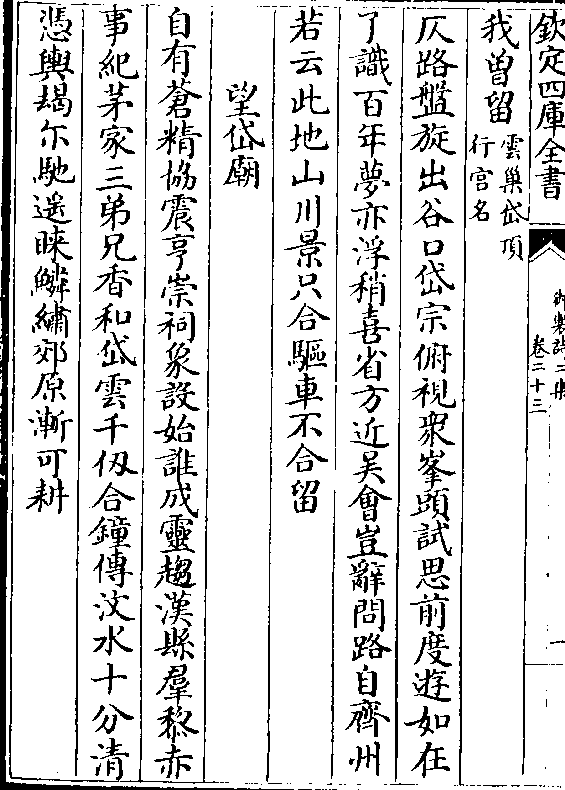 欽定四庫全書
御製詩二集
卷二十三
一
我曽留雲巢岱頂行宫名
仄路盤旋出谷口岱宗俯視衆峯頭試思前度遊如在
了識百年夢亦浮稍喜省方近吴會豈辭問路自齊州
若云此地山川景只合驅車不合留
望岱廟
自有蒼精協震亨崇祠象設始誰成靈趨漢縣羣黎赤
事紀茅家三弟兄香和岱雲千仭合鐘傳汶水十分清
憑輿朅尓馳遥睞鱗繡郊原漸可耕